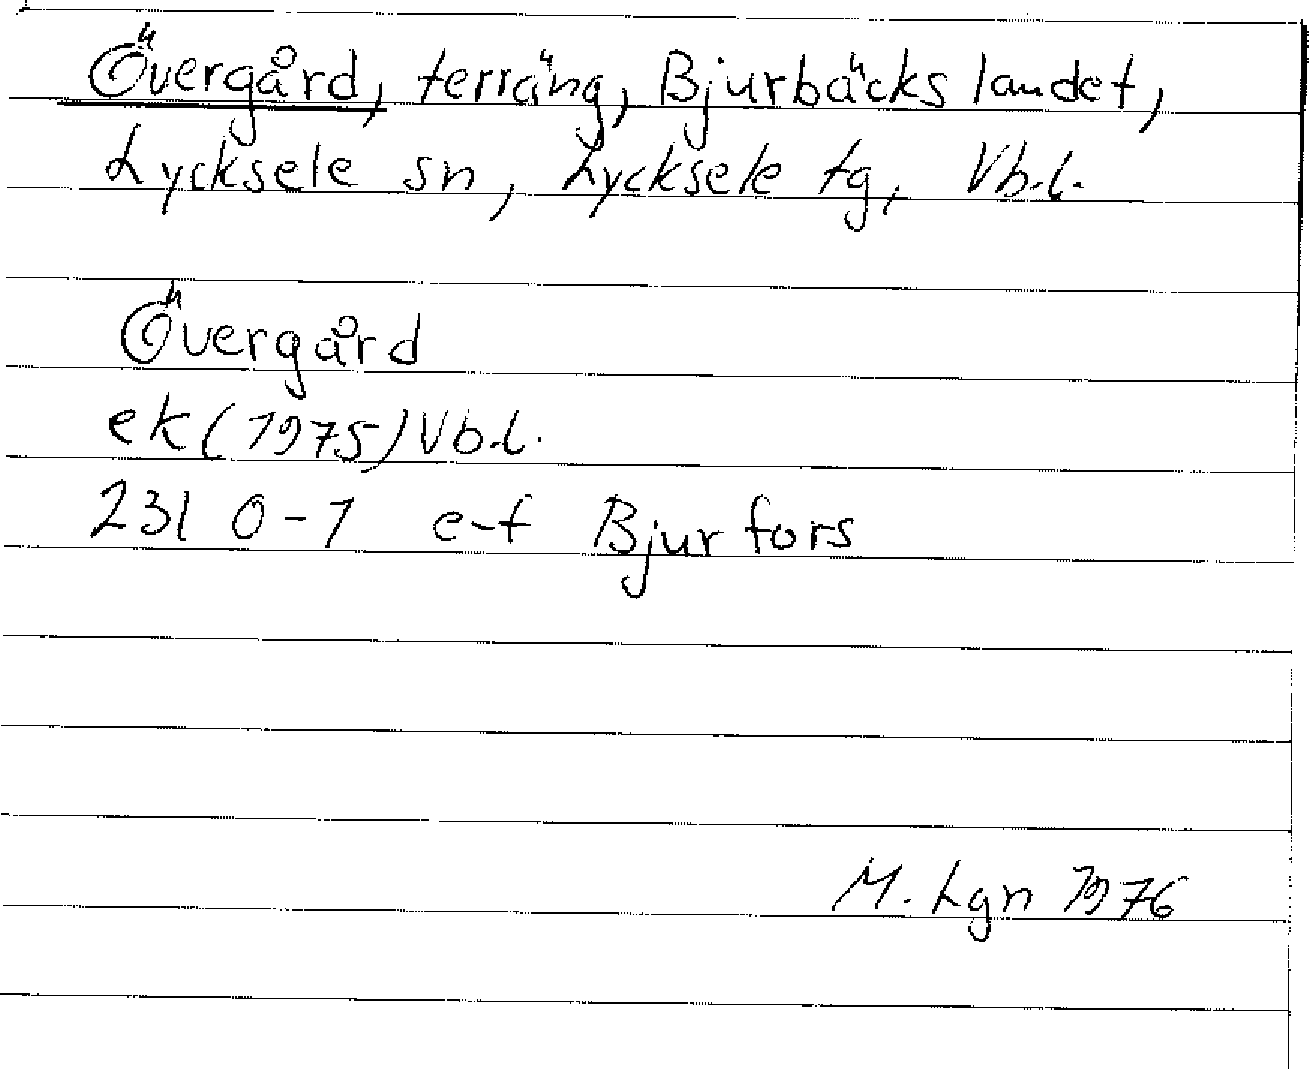 Övergård, terräng, Bjurbäckslandet,
Lycksele sn, Lycksele tg, Vb.l.
Övergård
ek (1975) Vb.l.
23I 0-1 e-f Bjurfors
M. Lgn 1976